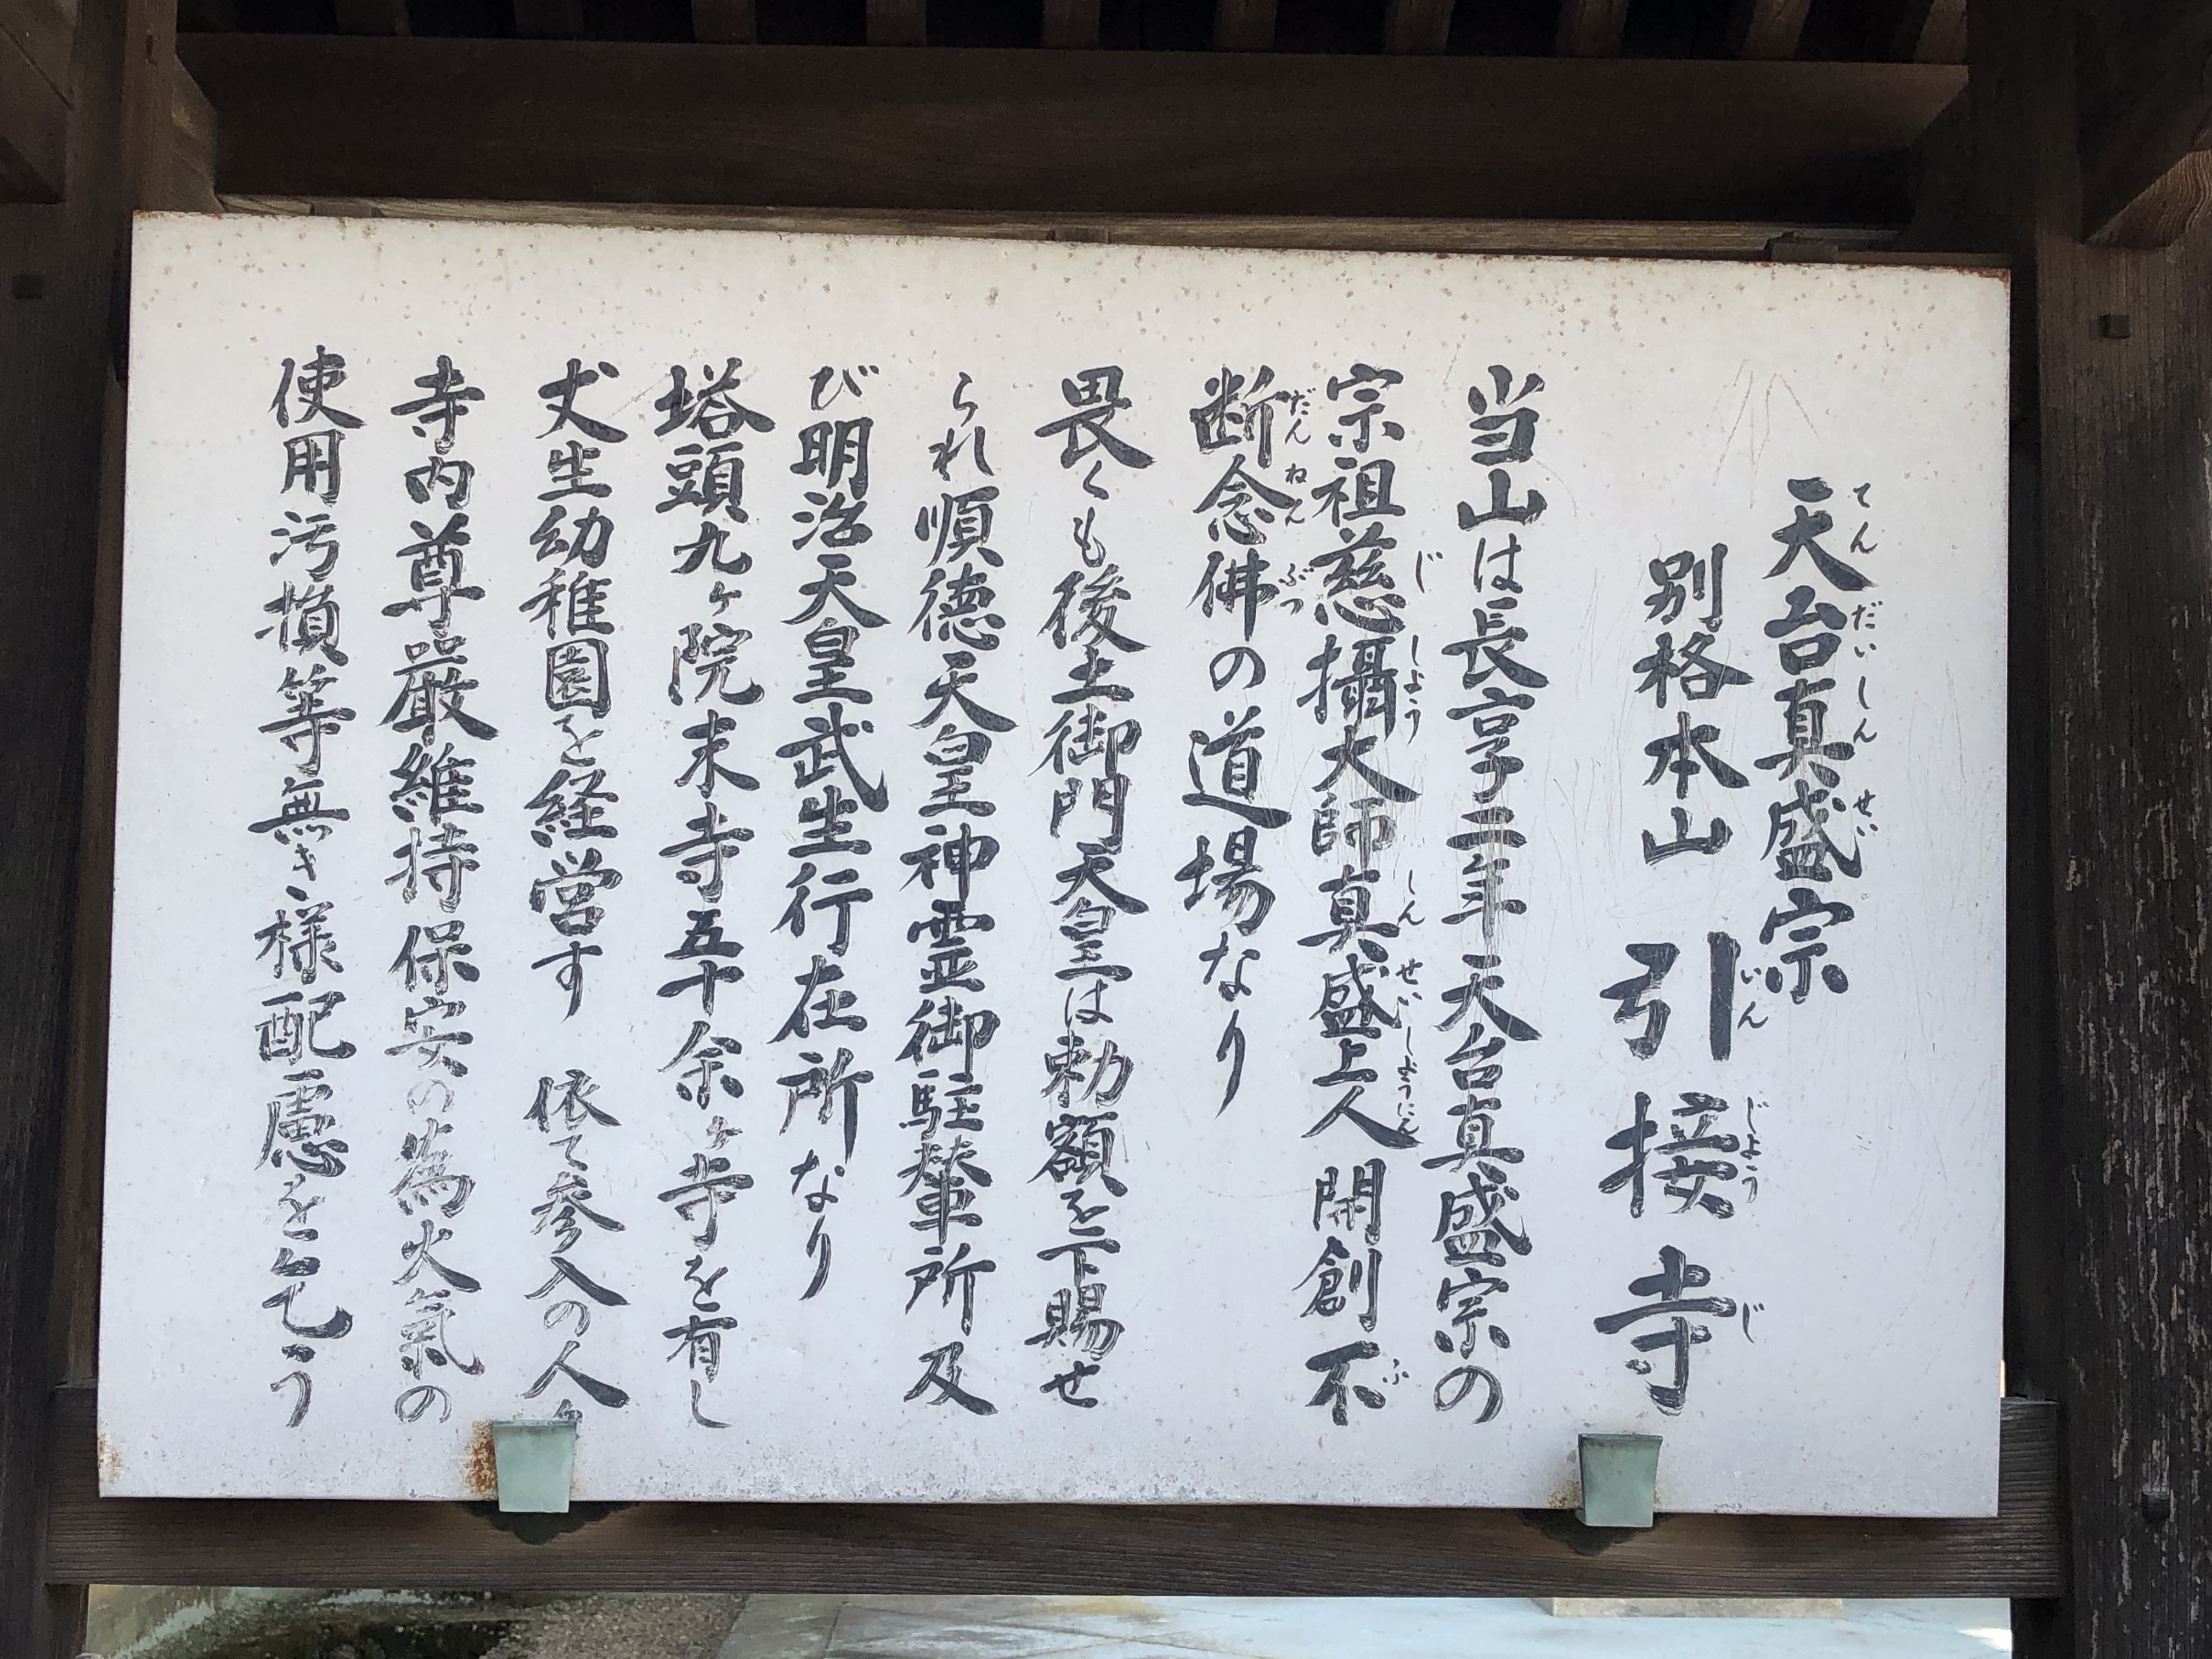 てんだいしんせい
天台真盛宗
いんじょうじ
別格本山 引接寺
当山は長享二年天台真盛宗の
じしょうしんせいしょうにんふ
宗祖慈攝大師真盛上人開創不
だんねんぶつ
断念佛の道場なり
畏くも後土御門天皇は勅額を下賜せ
られ順徳天皇神霊御駐輦所及
び明治天皇武生行在所なり
塔頭九ヶ院末寺五十余ヶ寺を有し
丈生幼稚園を経営す 依て参入の人々
寺内尊厳維持保安の為火氣の
使用汚損等無き様配慮を乞う